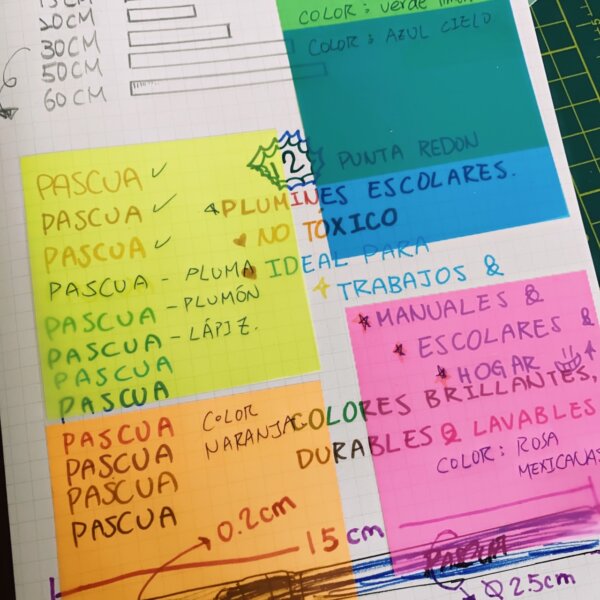 20CM
30CM
50CM
60CM
COLOR: verde
COLOR: AZUL CIELO
2 PUNTA REDON
PLUMINES ESCOLARES.
NO TÓXICO
IDEAL PARA
TRABAJOS &
MANUALES &
ESCOLARES &
HOGAR
COLORES BRILLANTES,
DURABLES & LAVABLES
COLOR: ROSA
MEXICA
PASCUA
PASCUA
PASCUA
PASCUA - PLUMA
PASCUA - PLUMÓN
PASCUA - LÁPIZ.
PASCUA
PASCUA
PASCUA
PASCUA
PASCUA
PASCUA
COLOR
NARANJA
0.2cm
15cm
PASCUA
Ø 2.5cm